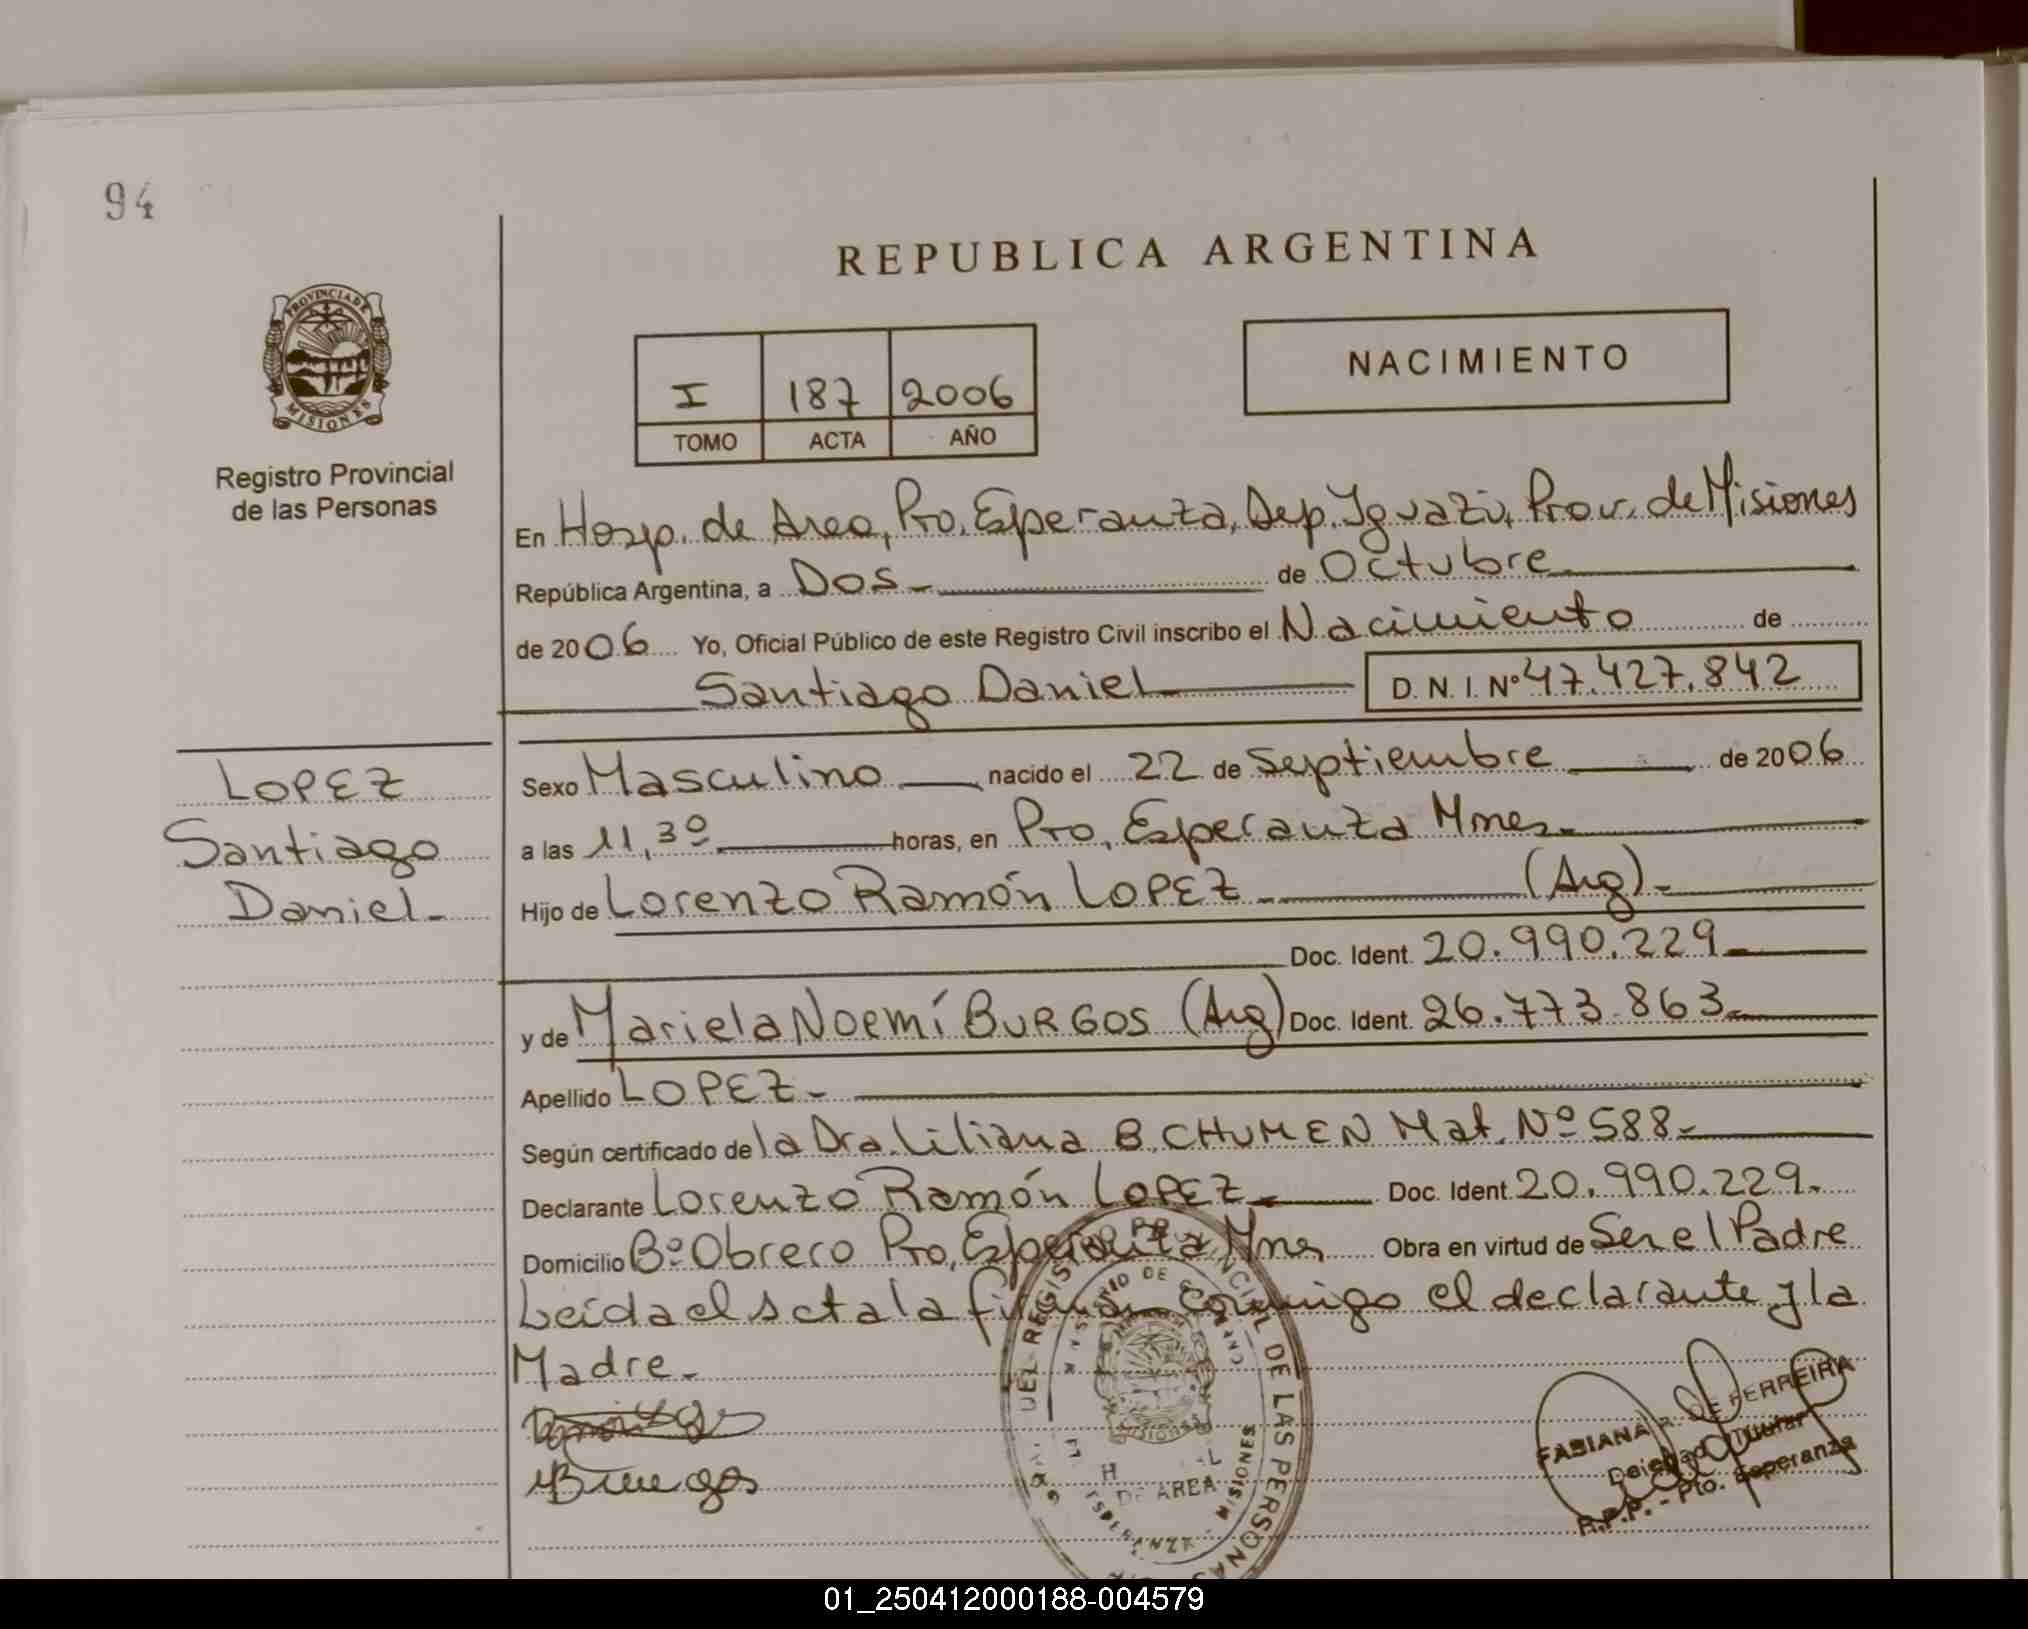 94
REPUBLICA ARGENTINA
PROVINCIA DE
MISIONES
Registro Provincial
de las Personas
I 187 2006
TOMO ACTA AÑO
NACIMIENTO
En Hosp. de Area, Pto, Esperanza, Dep. Iguazú, Prov. de Misiones
República Argentina, a Dos - de Octubre
de 2006 Yo, Oficial Público de este Registro Civil inscribo el Nacimiento de
Santiago Daniel D. N. I. Nº 47.427.842
LOPEZ
Santiago
Daniel -
Sexo Masculino nacido el 22 de Septiembre de 2006
a las 11,30 horas, en Pto, Esperanza Mnes -
Hijo de Lorenzo Ramón LOPEZ - (Arg) -
Doc. Ident. 20.990.229 -
y de Mariela Noemí BURGOS (Arg) Doc. Ident. 26.773.863 -
Apellido LOPEZ -
Según certificado de la Dra. Liliana B. CHUMEN Mat. Nº 588 -
Declarante Lorenzo Ramón LOPEZ - Doc. Ident. 20.990.229 -
Domicilio Bº Obrero Pto, Esperanza Mnes Obra en virtud de Ser el Padre
Leída el acta la firman conmigo el declarante y la
Madre -
Burgos
DE LAS PERSONAS
DE AREA
MISIONES
FABIANA R. DE FERREIRA
Delegada Titular
R.P.P. - Pto. Esperanza
01_250412000188-004579